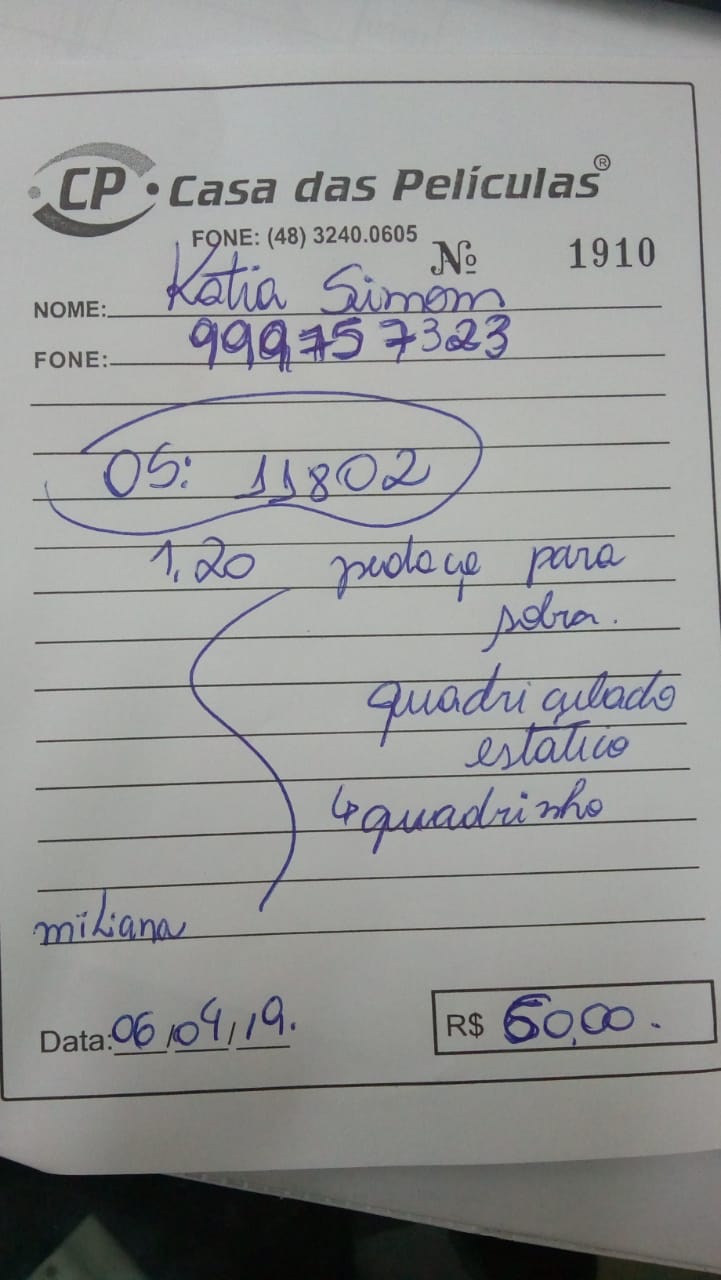 CP • Casa das Películas®
FONE: (48) 3240.0605
Nº 1910
NOME: Katia Simom
FONE: 999757323
OS: 11802
1,20 pedaço para
sobra.
quadriculado
estático
↳ quadrinho
miliana
Data: 06/04/19.
R$ 60,00.